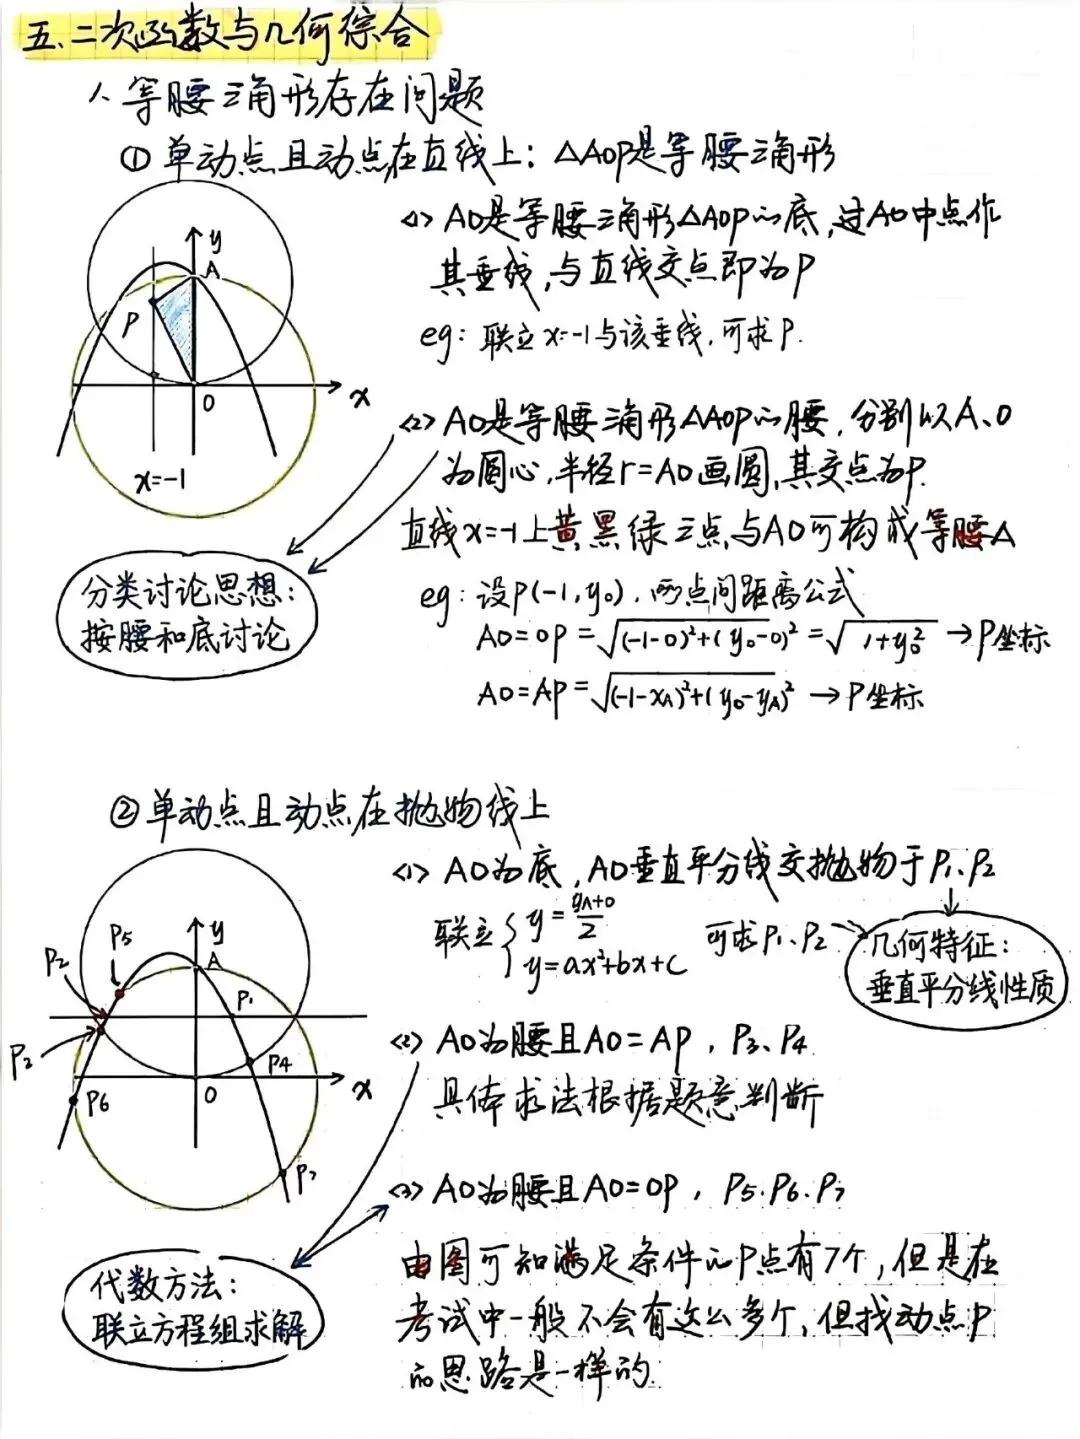 五.二次函数与几何综合
1、等腰三角形存在问题
① 单动点且动点在直线上：△AOP是等腰三角形
<1> AO是等腰三角形△AOP的底，过AO中点作
其垂线，与直线交点即为P
eg：联立x=-1与该垂线，可求P.
y
A
P
O
x
x=-1
<2> AO是等腰三角形△AOP的腰，分别以A、O
为圆心，半径r=AO画圆，其交点为P.
直线x=-1上黄黑绿三点与AO可构成等腰△
eg：设P(-1,y₀)，两点间距离公式
AO=OP=√(-1-0)²+(y₀-0)²=√1+y₀² →P坐标
AO=AP=√(-1-xA)²+(y₀-yA)² →P坐标
分类讨论思想：
按腰和底讨论
②单动点且动点在抛物线上
<1> AO为底，AO垂直平分线交抛物于P₁、P₂
联立{y=yA+0/2
y=ax²+bx+c
可求P₁、P₂
几何特征：
垂直平分线性质
y
P5
A
P2
P1
P4
O
x
P6
P7
<2> AO为腰且AO=AP，P₃、P₄
具体求法根据题意判断
<3> AO为腰且AO=OP，P5.P6.P7
由图可知满足条件的P点有7个，但是在
考试中一般不会有这么多个，但找动点P
的思路是一样的.
代数方法：
联立方程组求解